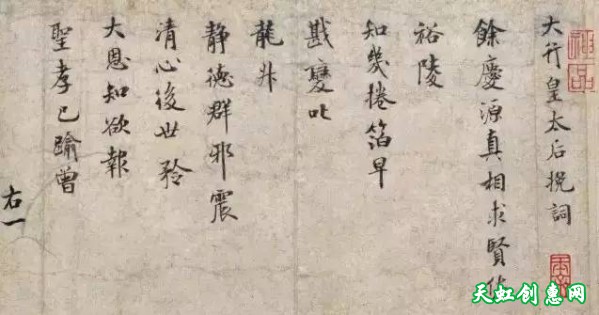 神品
大行皇太后挽詞
餘慶源真相求賢
裕陵
知幾捲箔早
戡變叱
龍升
静德群邪震
清心後世矜
大恩知欲報
聖孝已踰曾
右一
天虹创惠网